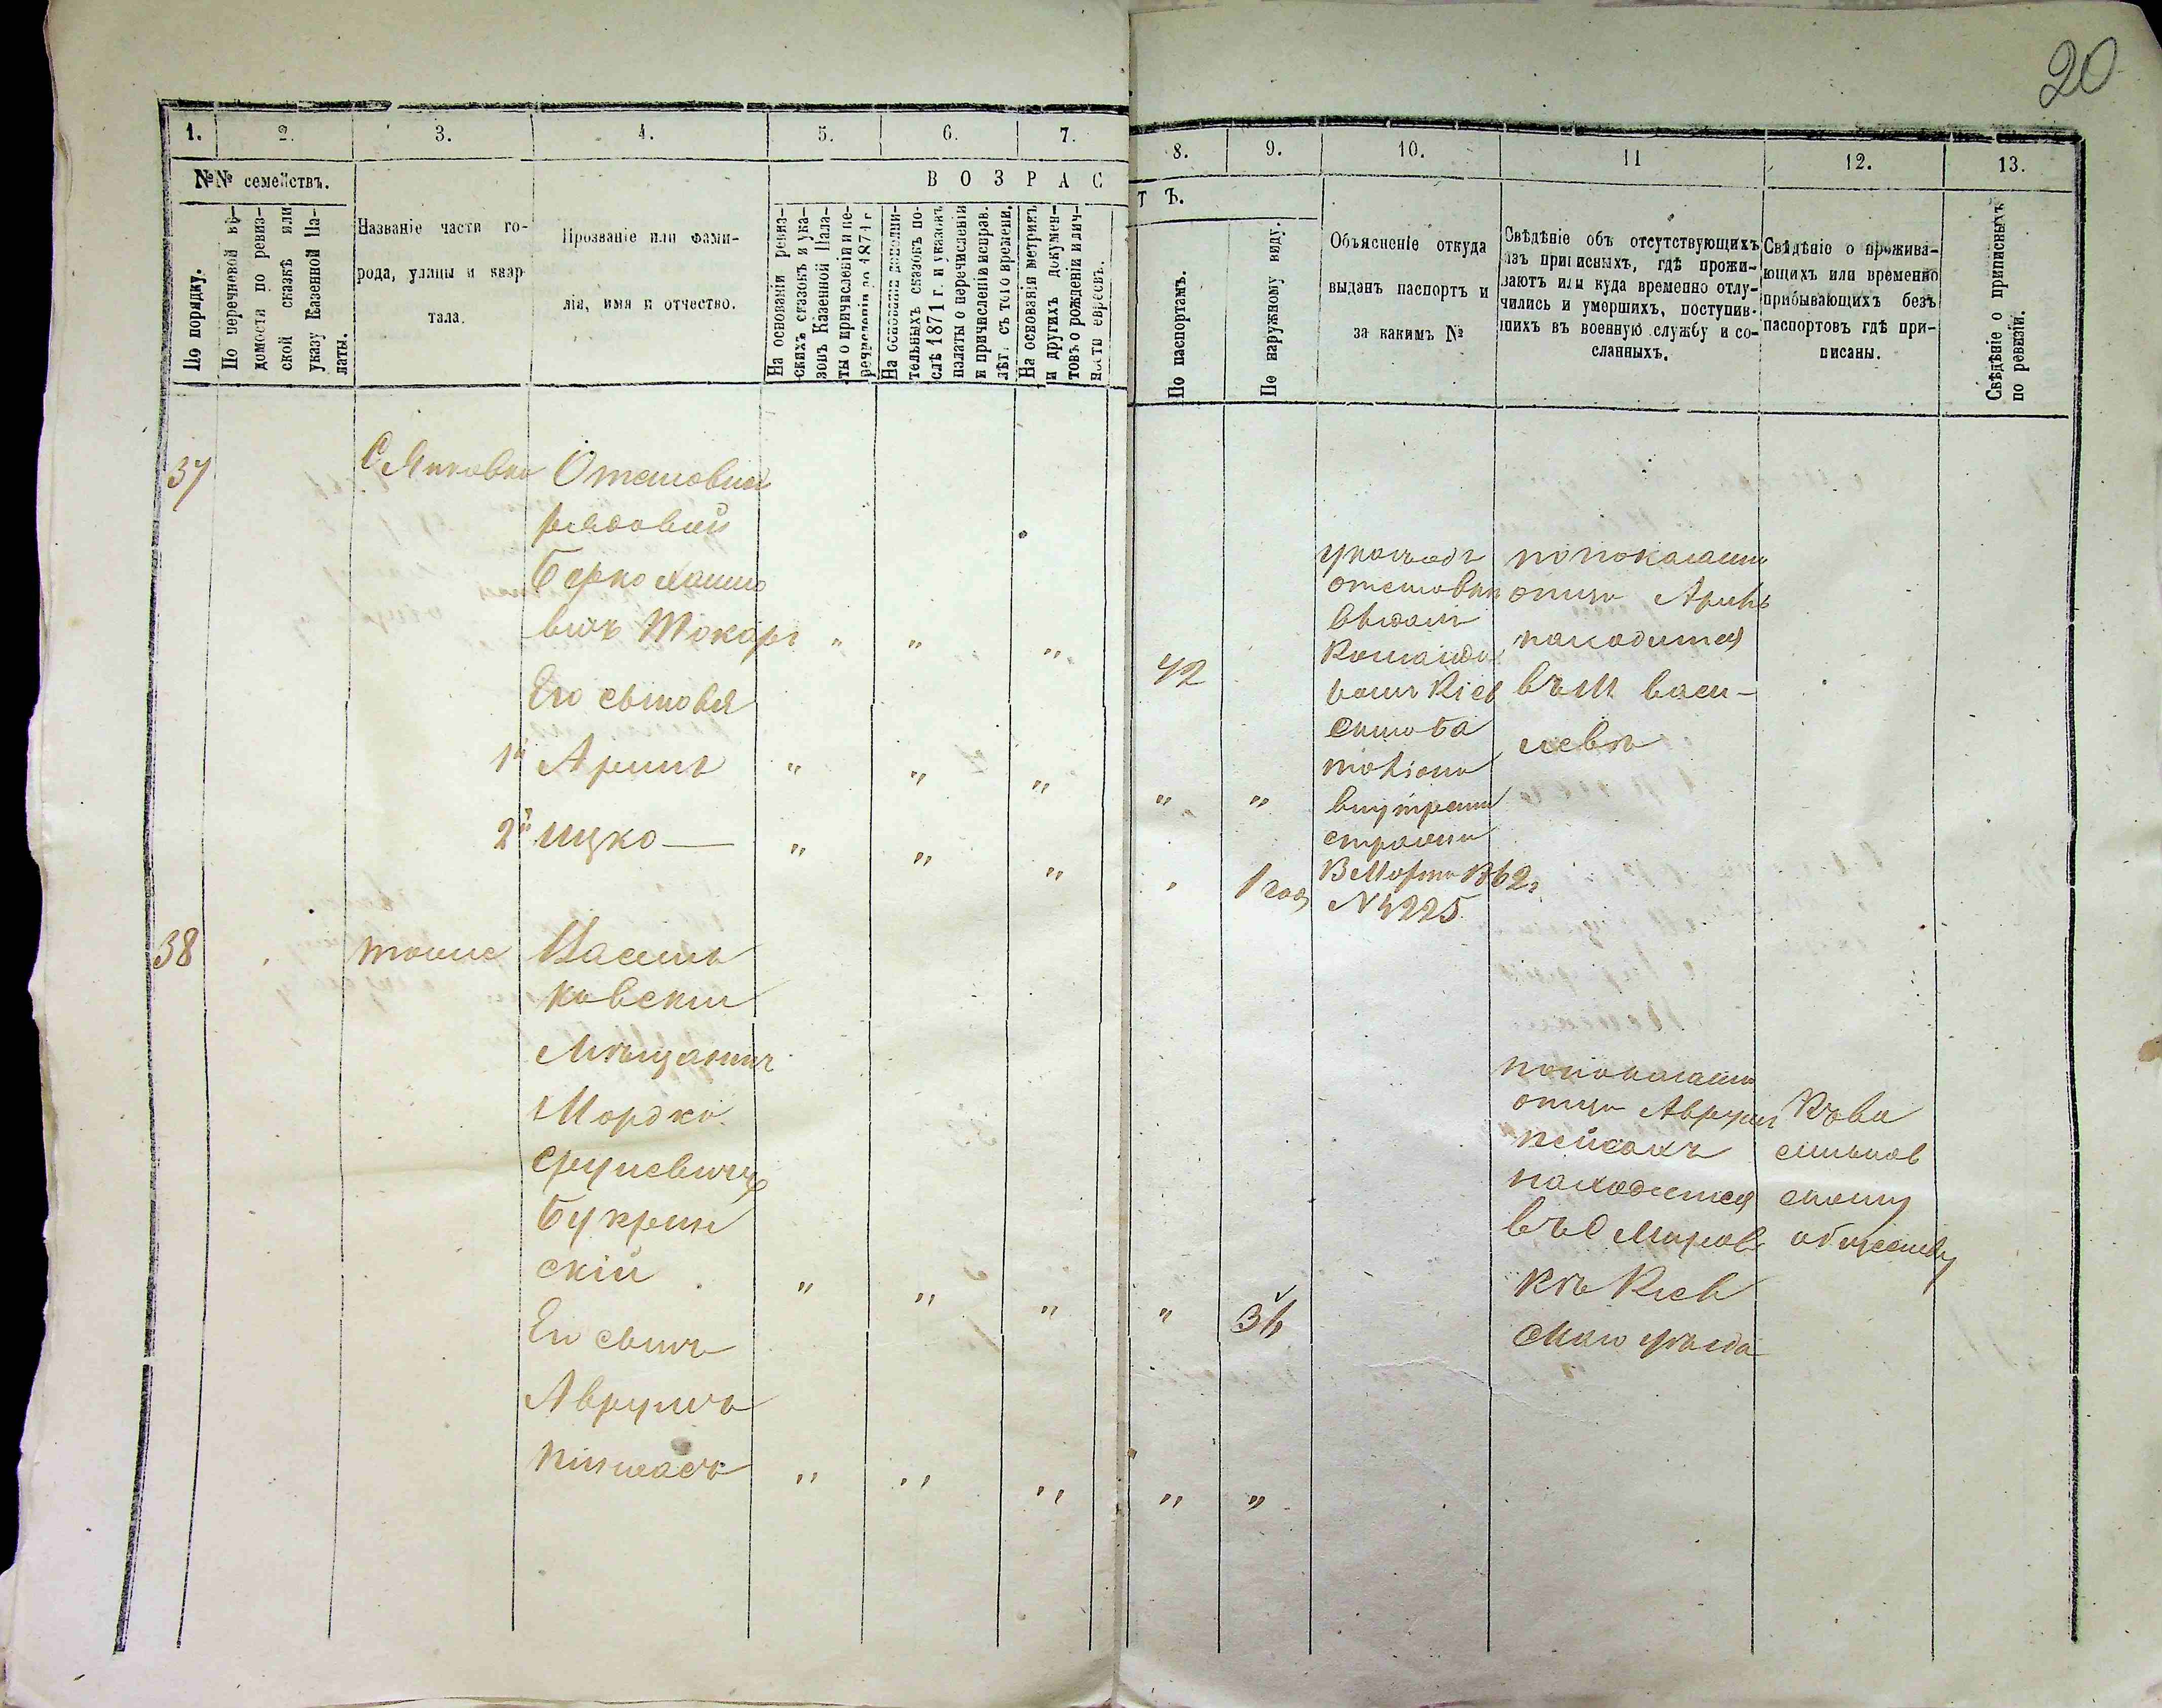 20
1. 2. 3. 4. 5. 6. 7. 8. 9. 10. 11 12. 13.
№№ семействъ.
В О З Р А С Т Ъ.
По порядку.
По перечневой вѣ-
домости по ревиз-
ской сказкѣ или
указу Казенной Па-
латы.
Названіе части го-
рода, улицы и квар-
тала.
Прозваніе или фами-
лія, имя и отчество.
На основаніи ревиз-
скихъ сказокъ и ука-
зовъ Казенной Пала-
ты о причисленіи и пе-
речисленіи до 1874 г.
На основаніи дополни-
тельныхъ сказокъ по-
слѣ 1871 г. и указовъ
палаты о перечисленіи
и причисленіи исправ.
лѣт. съ того времени.
На основаніи метрикъ
и другихъ докумен-
товъ о рожденіи и лич-
ности евреевъ.
По паспортамъ.
По наружному виду.
Объясненіе откуда
выданъ паспортъ и
за какимъ №
Свѣдѣніе объ отсутствующихъ
изъ приписныхъ, гдѣ прожи-
ваютъ или куда временно отлу-
чились и умершихъ, поступив-
шихъ въ военную службу и со-
сланныхъ.
Свѣдѣніе о прожива-
ющихъ или временно
прибывающихъ безъ
паспортовъ гдѣ при-
писаны.
Свѣдѣніе о приписныхъ
по ревизіи.
37
рядовый
Берко Хаимо
вичъ Токарь " " "
42
Его сыновья
1й Аринъ " " " " "
2й Ицко — " " " " 1 годъ
указъ объ
выдан
Кіев
баta
внутрени
стражи
В Марта 1862г
N 4225
по показанію
отца Аринъ
находится
въ м Васи-
левъ
38
тоже
Василь
ковскій
Мѣщанинъ
Мордко
Срулевичъ
Букрин
скій " " " " 36
Его сынъ
Аврумъ
Пинхасъ " " " " "
по показанію
отца Аврумъ
Пейсахъ
находится
въ С Мировкѣ Кіев
скаго уѣзда
Къ Ва
сильков
скому
обществу